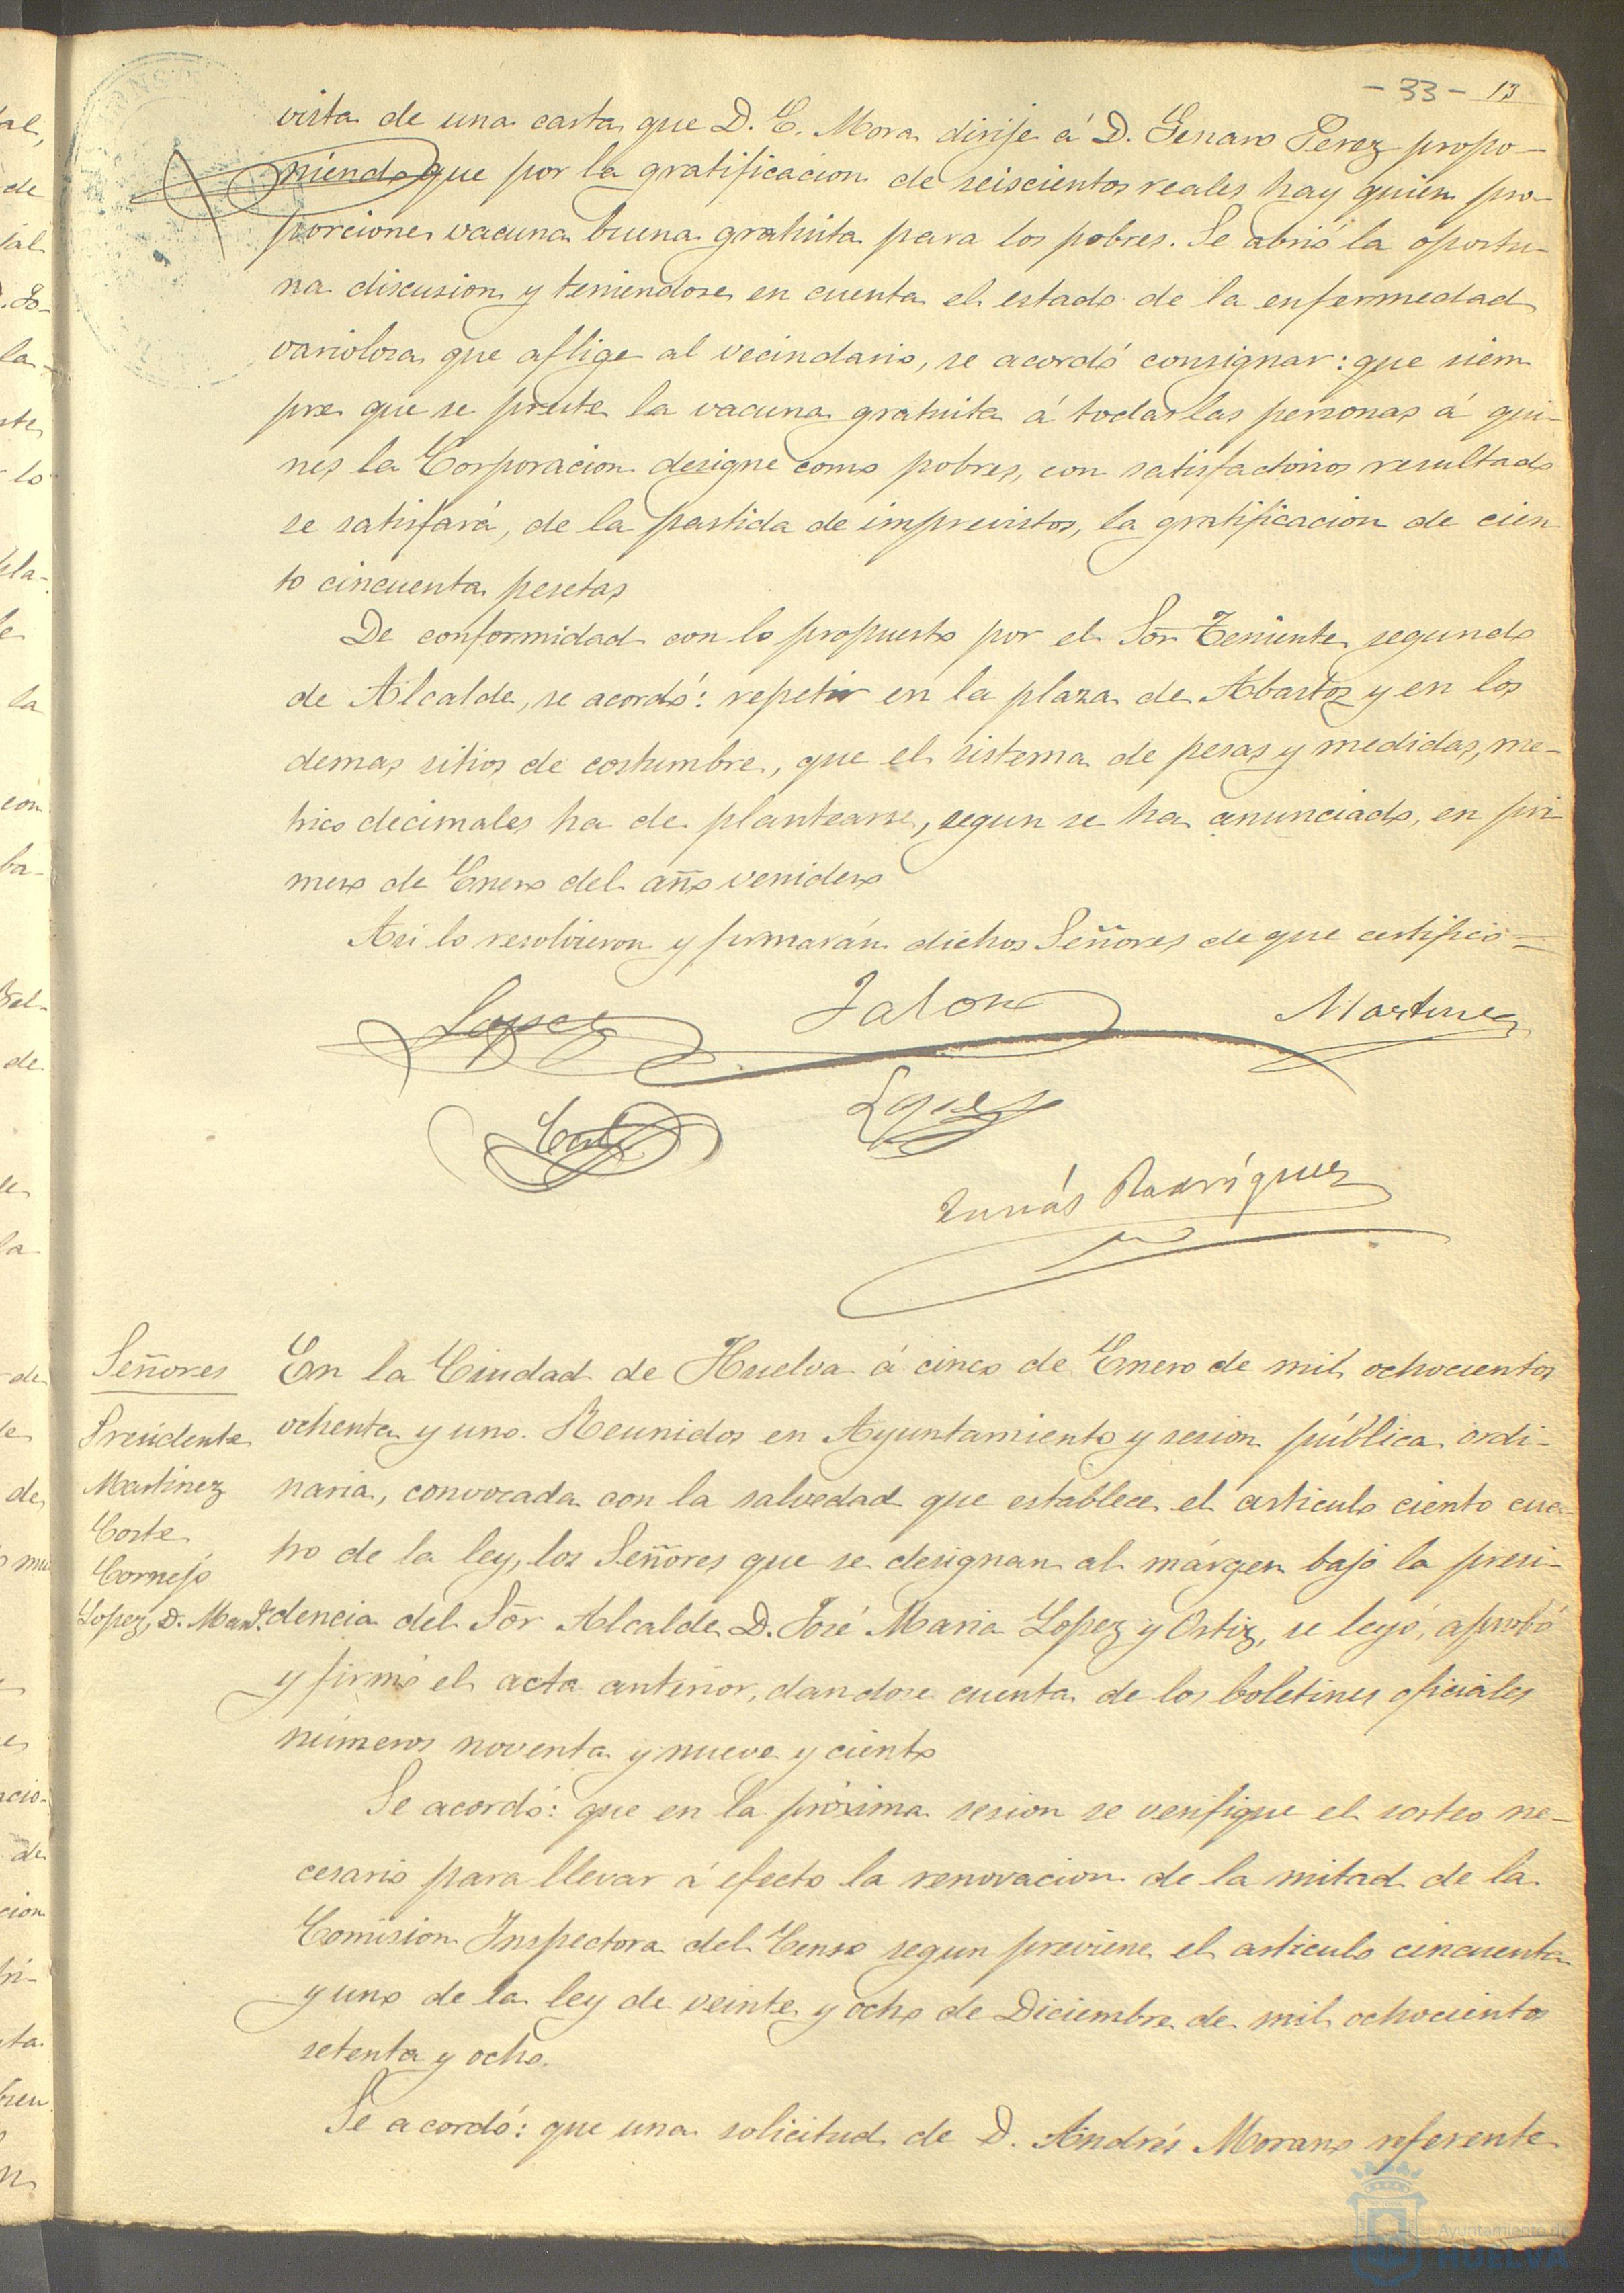 - 33 - 13
vista de una carta que D. E. Mora dirije á D. Genaro Perez propo-
niendo que por la gratificacion de seiscientos reales hay quien pro-
porcione vacuna buena gratuita para los pobres. Se abrió la oportu-
na discusion y teniendose en cuenta el estado de la enfermedad
variolosa que aflige al vecindario, se acordó consignar: que siem
pre que se preste la vacuna gratuita á todas las personas á qui-
nes la Corporacion designe como pobres, con satisfactorios resultado
se satisfará, de la partida de imprevistos, la gratificacion de cien
to cincuenta pesetas
De conformidad con lo propuesto por el Sor Teniente segundo
de Alcalde, se acordó: repetir en la plaza de Abastos y en los
demas sitios de costumbre, que el sistema de pesas y medidas, me-
trico decimales ha de plantearse, segun se ha anunciado, en pri
mero de Enero del año venidero
Asi lo resolvieron y firmarán dichos Señores de que certifico=
Lopez Jalon Martinez
Lopez
Tomás Rodríguez
Señores
Presidente
Martinez
Corte
Cornejo
Lopez, D. Manl.
En la Ciudad de Huelva á cinco de Enero de mil ochocientos
ochenta y uno. Reunidos en Ayuntamiento y sesion pública ordi-
naria, convocada con la salvedad que establece el articulo ciento cua-
tro de la ley, los Señores que se designan al márgen bajo la presi-
dencia del Sor Alcalde D. José Maria Lopez y Ortiz, se leyó, aprobó
y firmó el acta anterior, dandose cuenta de los boletines oficiales
números noventa y nueve y ciento
Se acordó: que en la próxima sesion se verifique el sorteo ne-
cesario para llevar á efecto la renovacion de la mitad de la
Comision Inspectora del Censo segun previene el articulo cincuenta
y uno de la ley de veinte y ocho de Diciembre de mil ochocientos
setenta y ocho.
Se acordó: que una solicitud de D. Andrés Morano referente
Ayuntamiento de
HUELVA